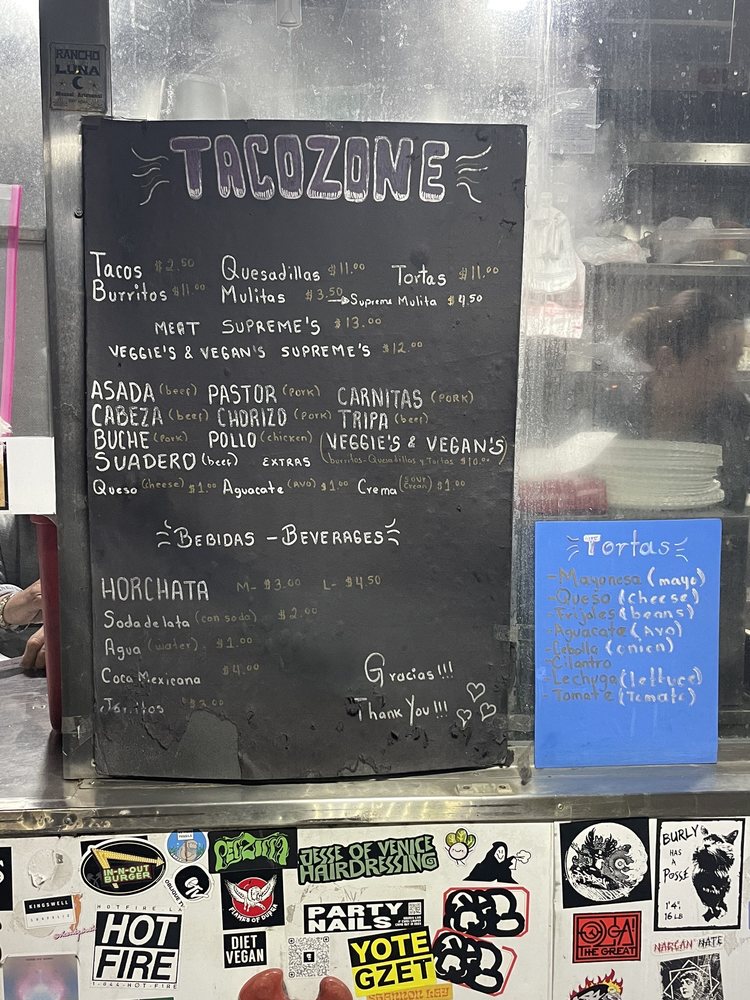 RANCHO
LUNA
TACOZONE
Tacos $2.50 Quesadillas $11.00 Tortas $11.00
Burritos $11.00 Mulitas $3.50 → Supreme Mulita $4.50
MEAT SUPREME'S $13.00
VEGGIE'S & VEGAN'S SUPREME'S $12.00
ASADA (beef) PASTOR (pork) CARNITAS (PORK)
CABEZA (beef) CHORIZO (pork) TRIPA (beef)
BUCHE (pork) POLLO (chicken) (VEGGIE'S & VEGAN'S)
SUADERO (beef) EXTRAS (burritos-Quesadillas y Tortas $10.00)
Queso (cheese) $1.00 Aguacate (AVO) $1.00 Crema (SOUR cream) $1.00
BEBIDAS - BEVERAGES
HORCHATA M- $3.00 L- $4.50
Soda de lata (can soda) $2.00
Agua (water) $1.00
Coca Mexicana $4.00
Jarritos $3.00
Gracias!!!
Thank You!!!
Tortas
-Mayonesa (mayo)
-Queso (cheese)
-Frijoles (beans)
-Aguacate (Avo)
-Cebolla (onion)
-Cilantro
-Lechuga (lettuce)
-Tomate (Tomato)
IN-N-OUT
BURGER
JESSE OF VENICE
HAIRDRESSING
KINGSWELL
HOTFIRE LA
HOT
FIRE
1-844-HOT-FIRE
DIET
VEGAN
PARTY
NAILS
YOTE
GZET
SHANNON LAY
THE GREAT
BURLY
HAS
A
POSSE
1'4",
16 LB
NARCAN NATE